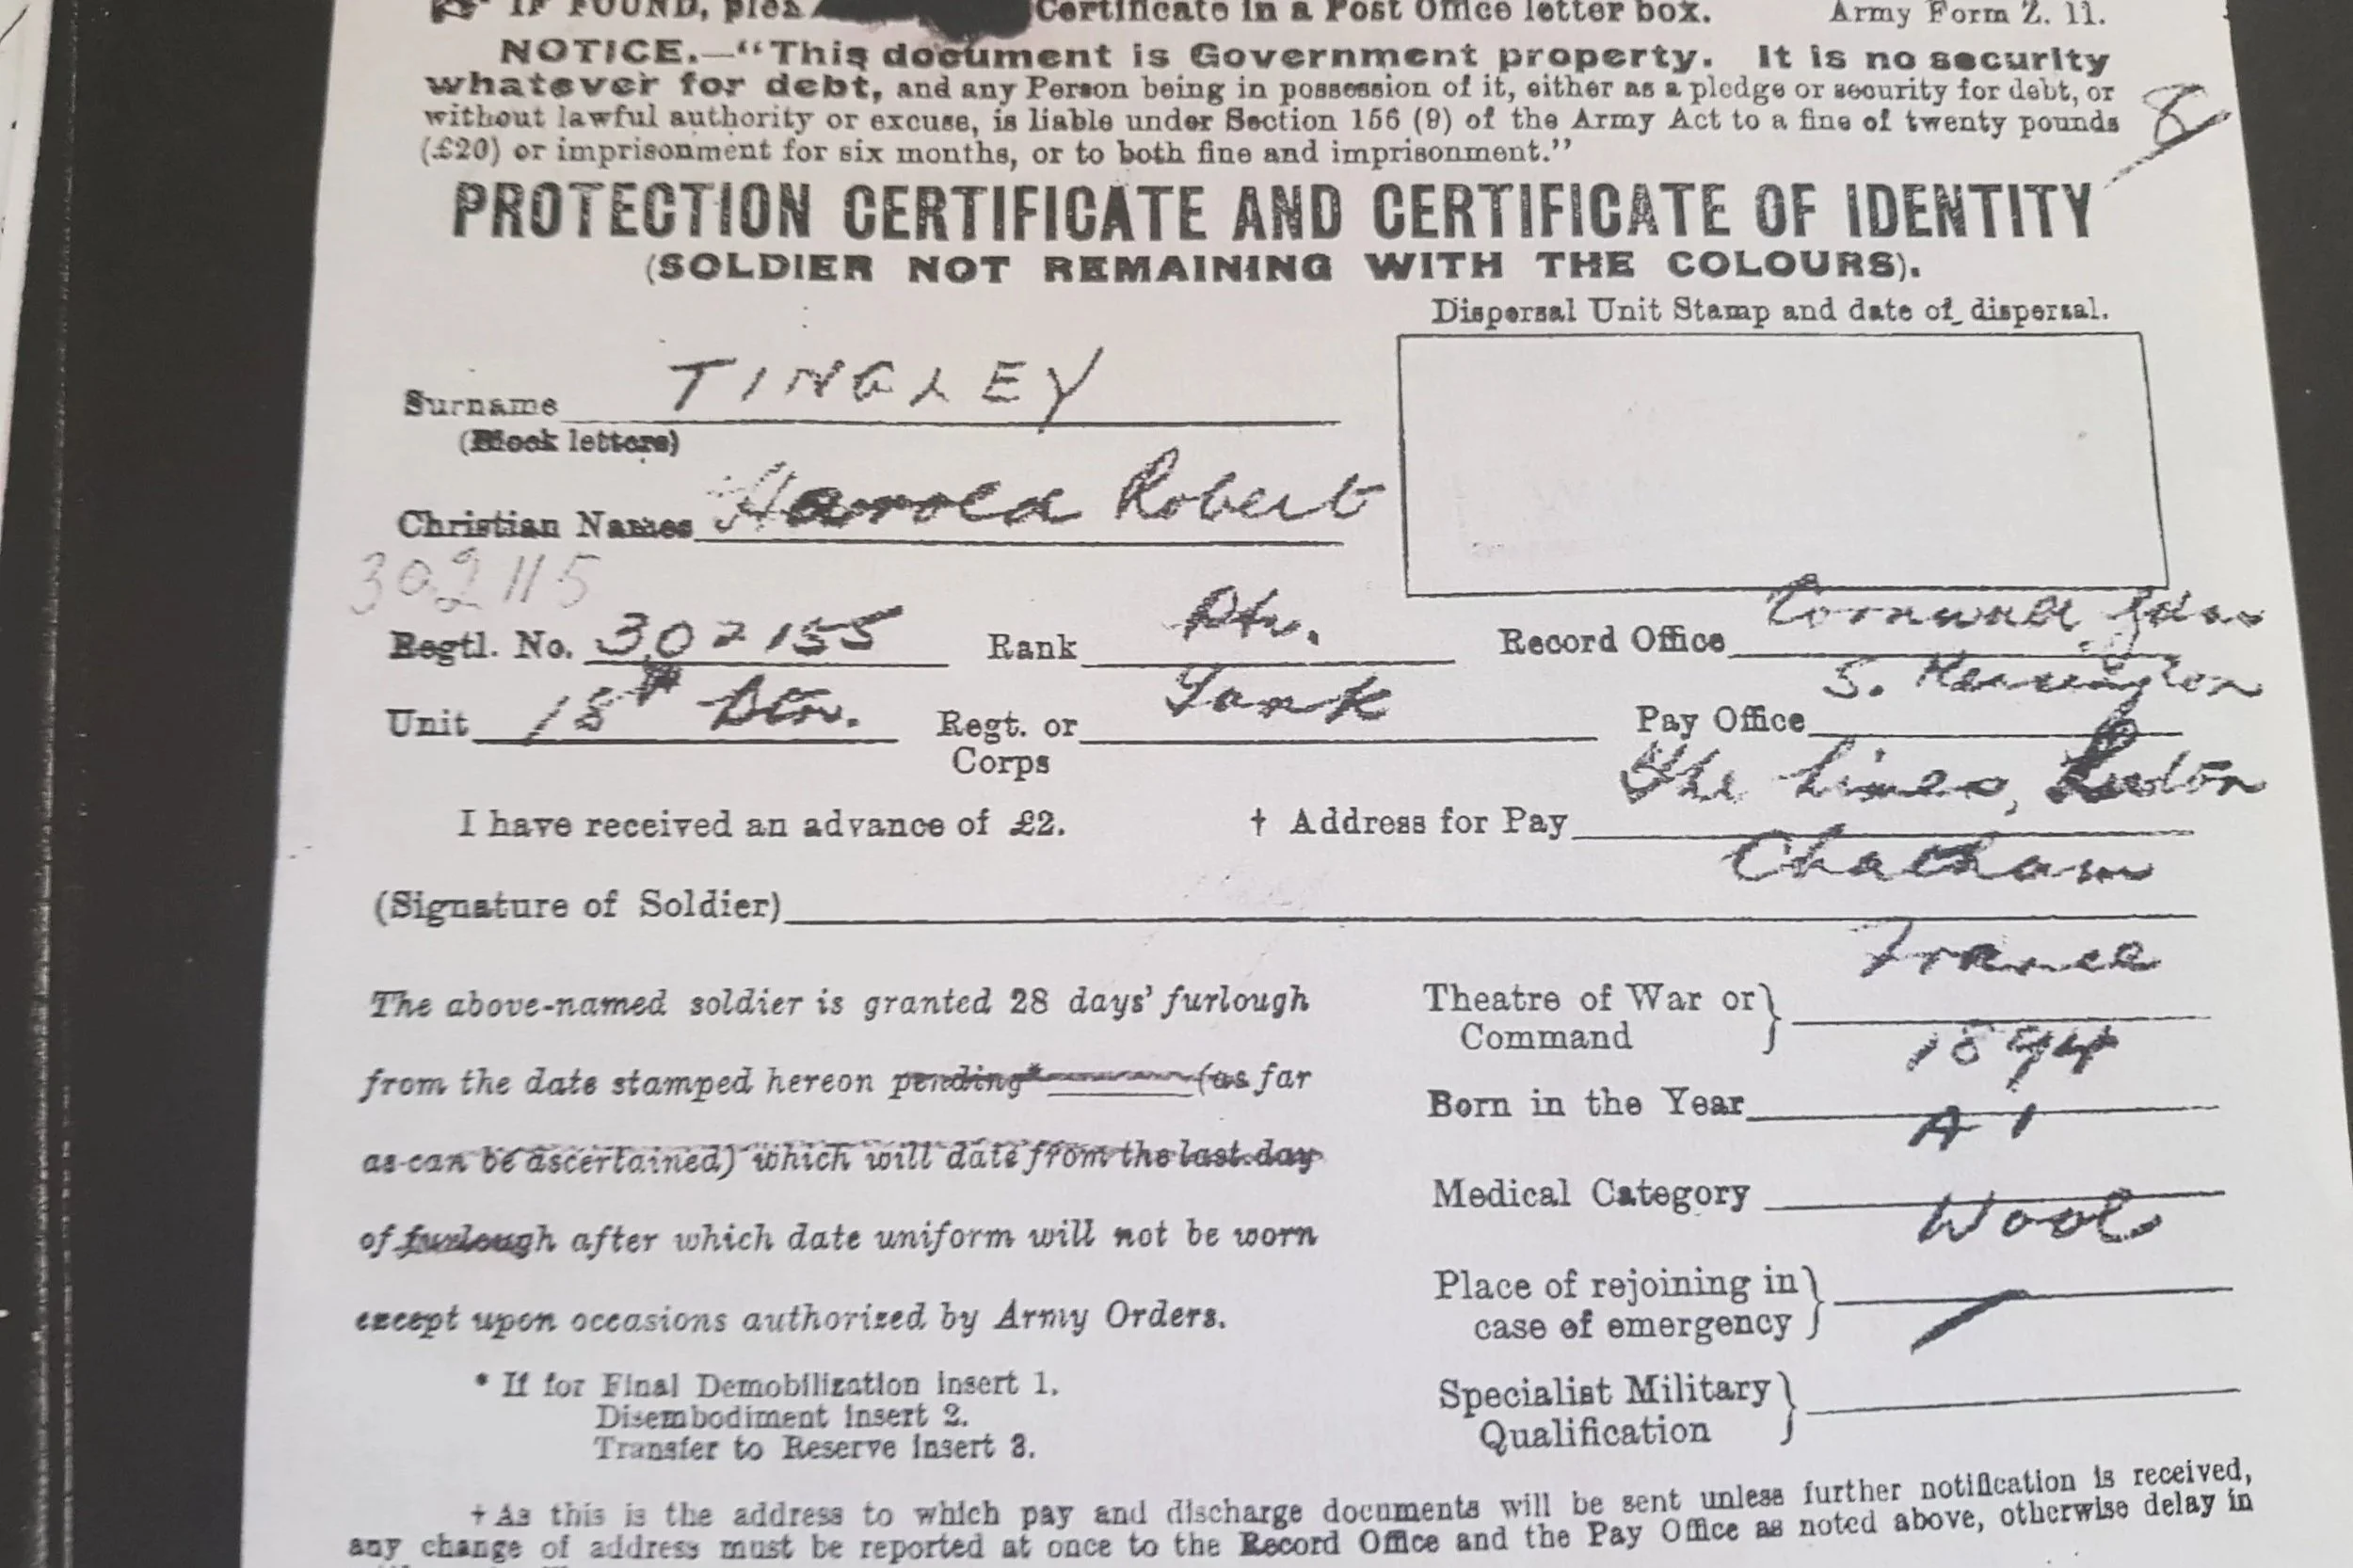 IF FOUND, plea Certificate in a Post Office letter box. Army Form Z. 11.
NOTICE.—“This document is Government property. It is no security
whatever for debt, and any Person being in possession of it, either as a pledge or security for debt, or
without lawful authority or excuse, is liable under Section 156 (9) of the Army Act to a fine of twenty pounds
(£20) or imprisonment for six months, or to both fine and imprisonment.”
8
PROTECTION CERTIFICATE AND CERTIFICATE OF IDENTITY
(SOLDIER NOT REMAINING WITH THE COLOURS).
Dispersal Unit Stamp and date of dispersal.
Surname TINGLEY
(Block letters)
Christian Names Harold Robert
302115
Regtl. No. 302155 Rank Pte. Record Office Cornwall Gdns
S. Kensington
Unit 18th Btn. Regt. or Corps Tank Pay Office
I have received an advance of £2. † Address for Pay The Lines, Luton
Chatham
(Signature of Soldier)
The above-named soldier is granted 28 days’ furlough
from the date stamped hereon pending* (as far
as can be ascertained) which will date from the last day
of furlough after which date uniform will not be worn
except upon occasions authorized by Army Orders.
* If for Final Demobilization insert 1.
Disembodiment insert 2.
Transfer to Reserve insert 3.
Theatre of War or Command France
Born in the Year 1894
Medical Category A 1
Place of rejoining in case of emergency Wool
Specialist Military Qualification
† As this is the address to which pay and discharge documents will be sent unless further notification is received,
any change of address must be reported at once to the Record Office and the Pay Office as noted above, otherwise delay in